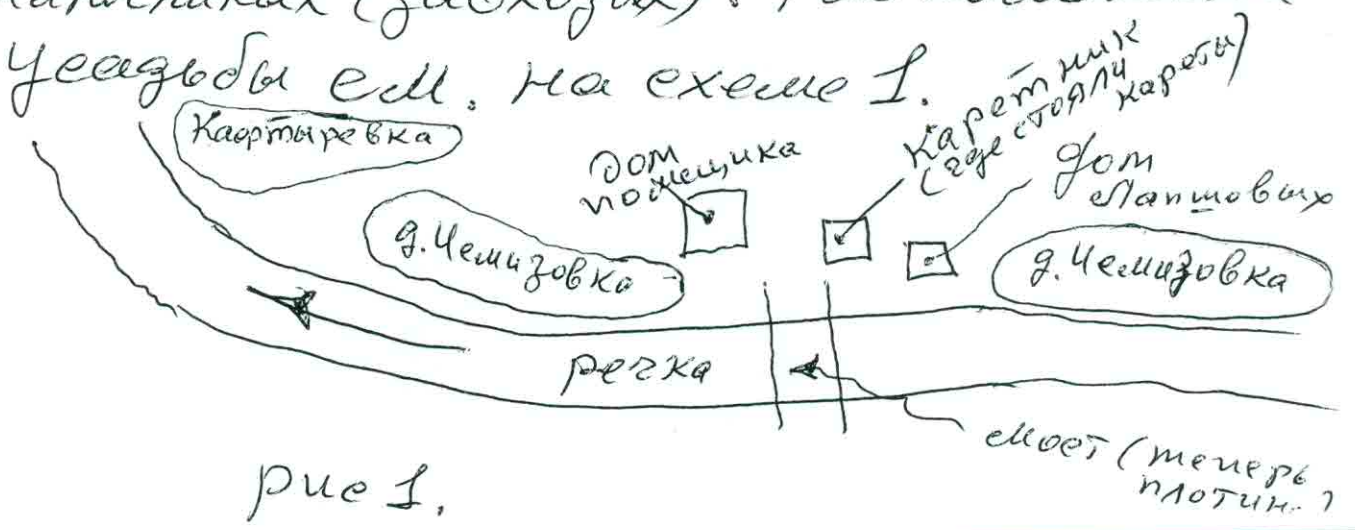 (завхозах).
Усадьбы см. на схеме 1.
Каортыревка
дом
помещика
Каретник
(где стояли
кареты)
дом
Лапшовых
д. Чемизовка
д. Чемизовка
речка
мост (теперь
рис 1.